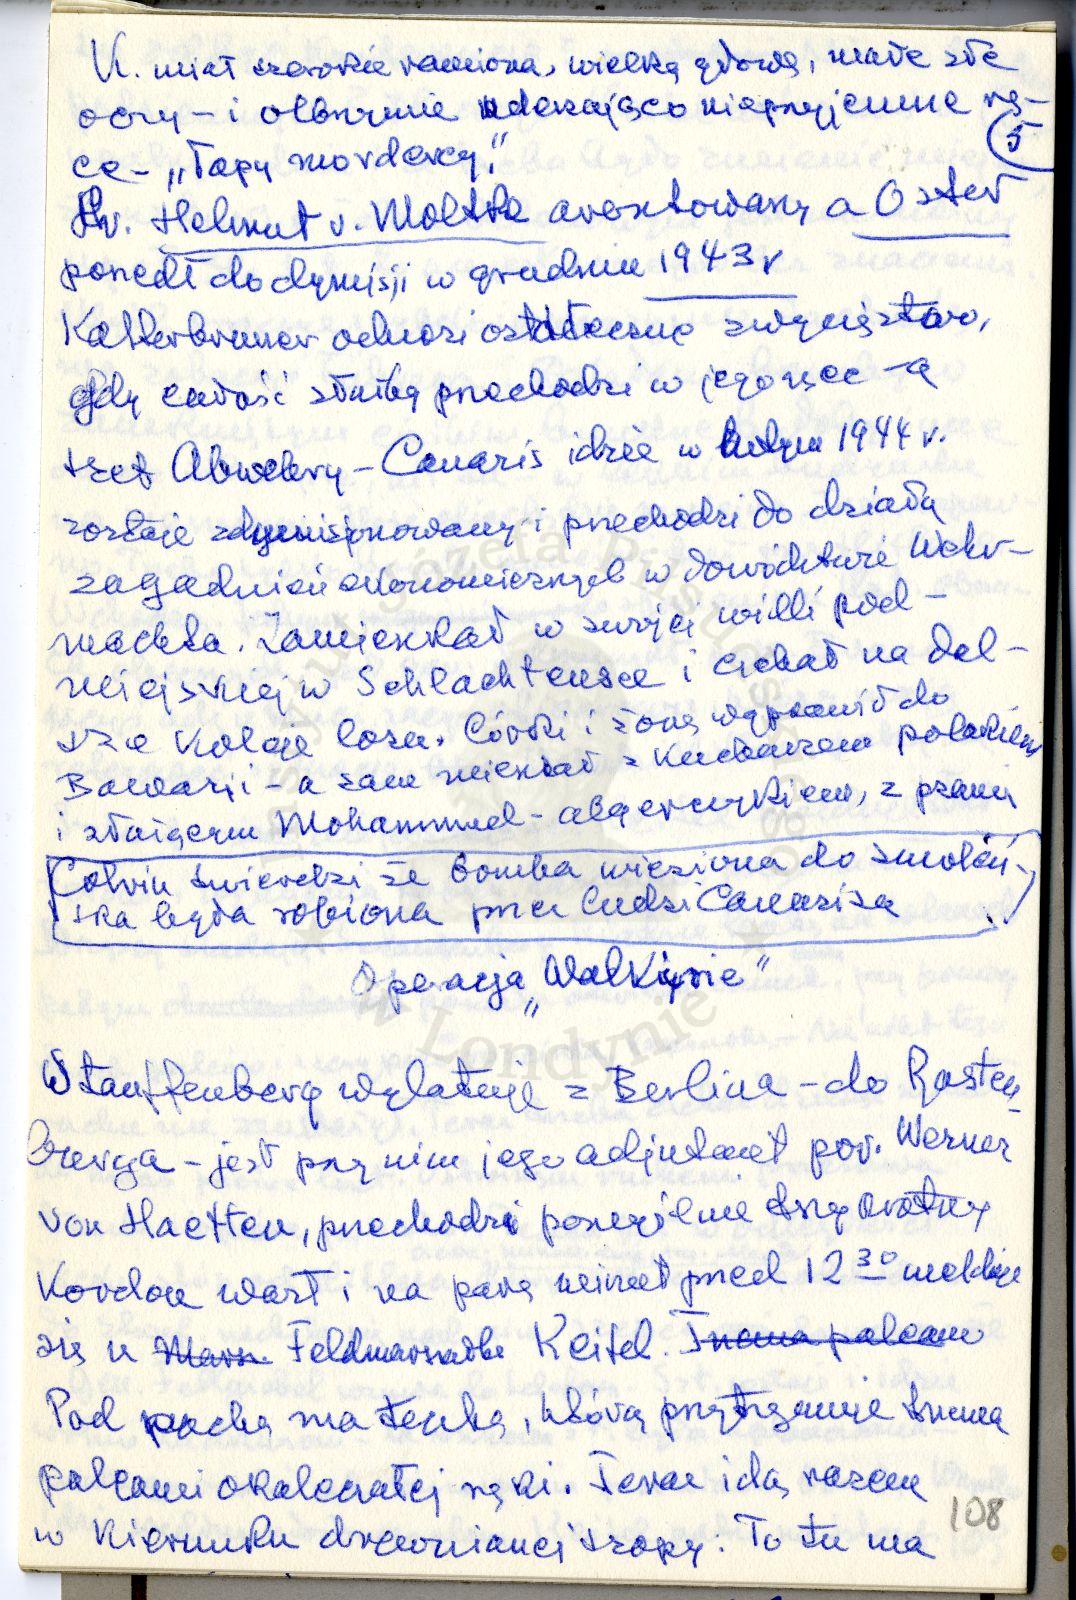 K. miał szerokie ramiona, wielką głowę, małe złe
oczy – i olbrzymie uderzająco nieprzyjemne rę-
ce – „łapy mordercy".
5
Hr. Helmut v. Moltke aresztowany a Oster
poszedł do dymisji w grudniu 1943 r
Kaltenbrunner odnosi ostateczne zwycięstwo,
gdy całość służby przechodzi w jego ręce – a
szef Abwehry – Canaris idzie w lutym 1944 r.
zostaje zdymisjonowany i przechodzi do działu
zagadnień ekonomicznych w dowództwie Wehr-
machtu. Zamieszkał w swojej willi pod-
miejskiej w Schlachtensee i czekał na dal-
sze koleje losu. Córki i żonę wyprawił do
Bawarji – a sam mieszkał z kucharzem polakiem
i służącym Mohammed – algerczykiem, z psami
Colvin twierdzi że bomba wieziona do Smoleń-
ska była robiona przez ludzi Canarisa
Operacja „Walkirie"
Stauffenberg wylatuje z Berlina – do Rasten-
burga – jest przy nim jego adjutant por. Werner
von Haeften, przechodzi pomyślnie trzykrotny
kordon wart i na parę minut przed 12 30 melduje
się u Mars. Feldmarszałka Keitel. Trzema palcami
Pod pachą ma teczkę, którą przytrzymuje trzema
palcami okaleczałej ręki. Teraz idą razem
w kierunku drewnianej szopy. To tu ma
108
Instytut Józefa Piłsudskiego
w Londynie